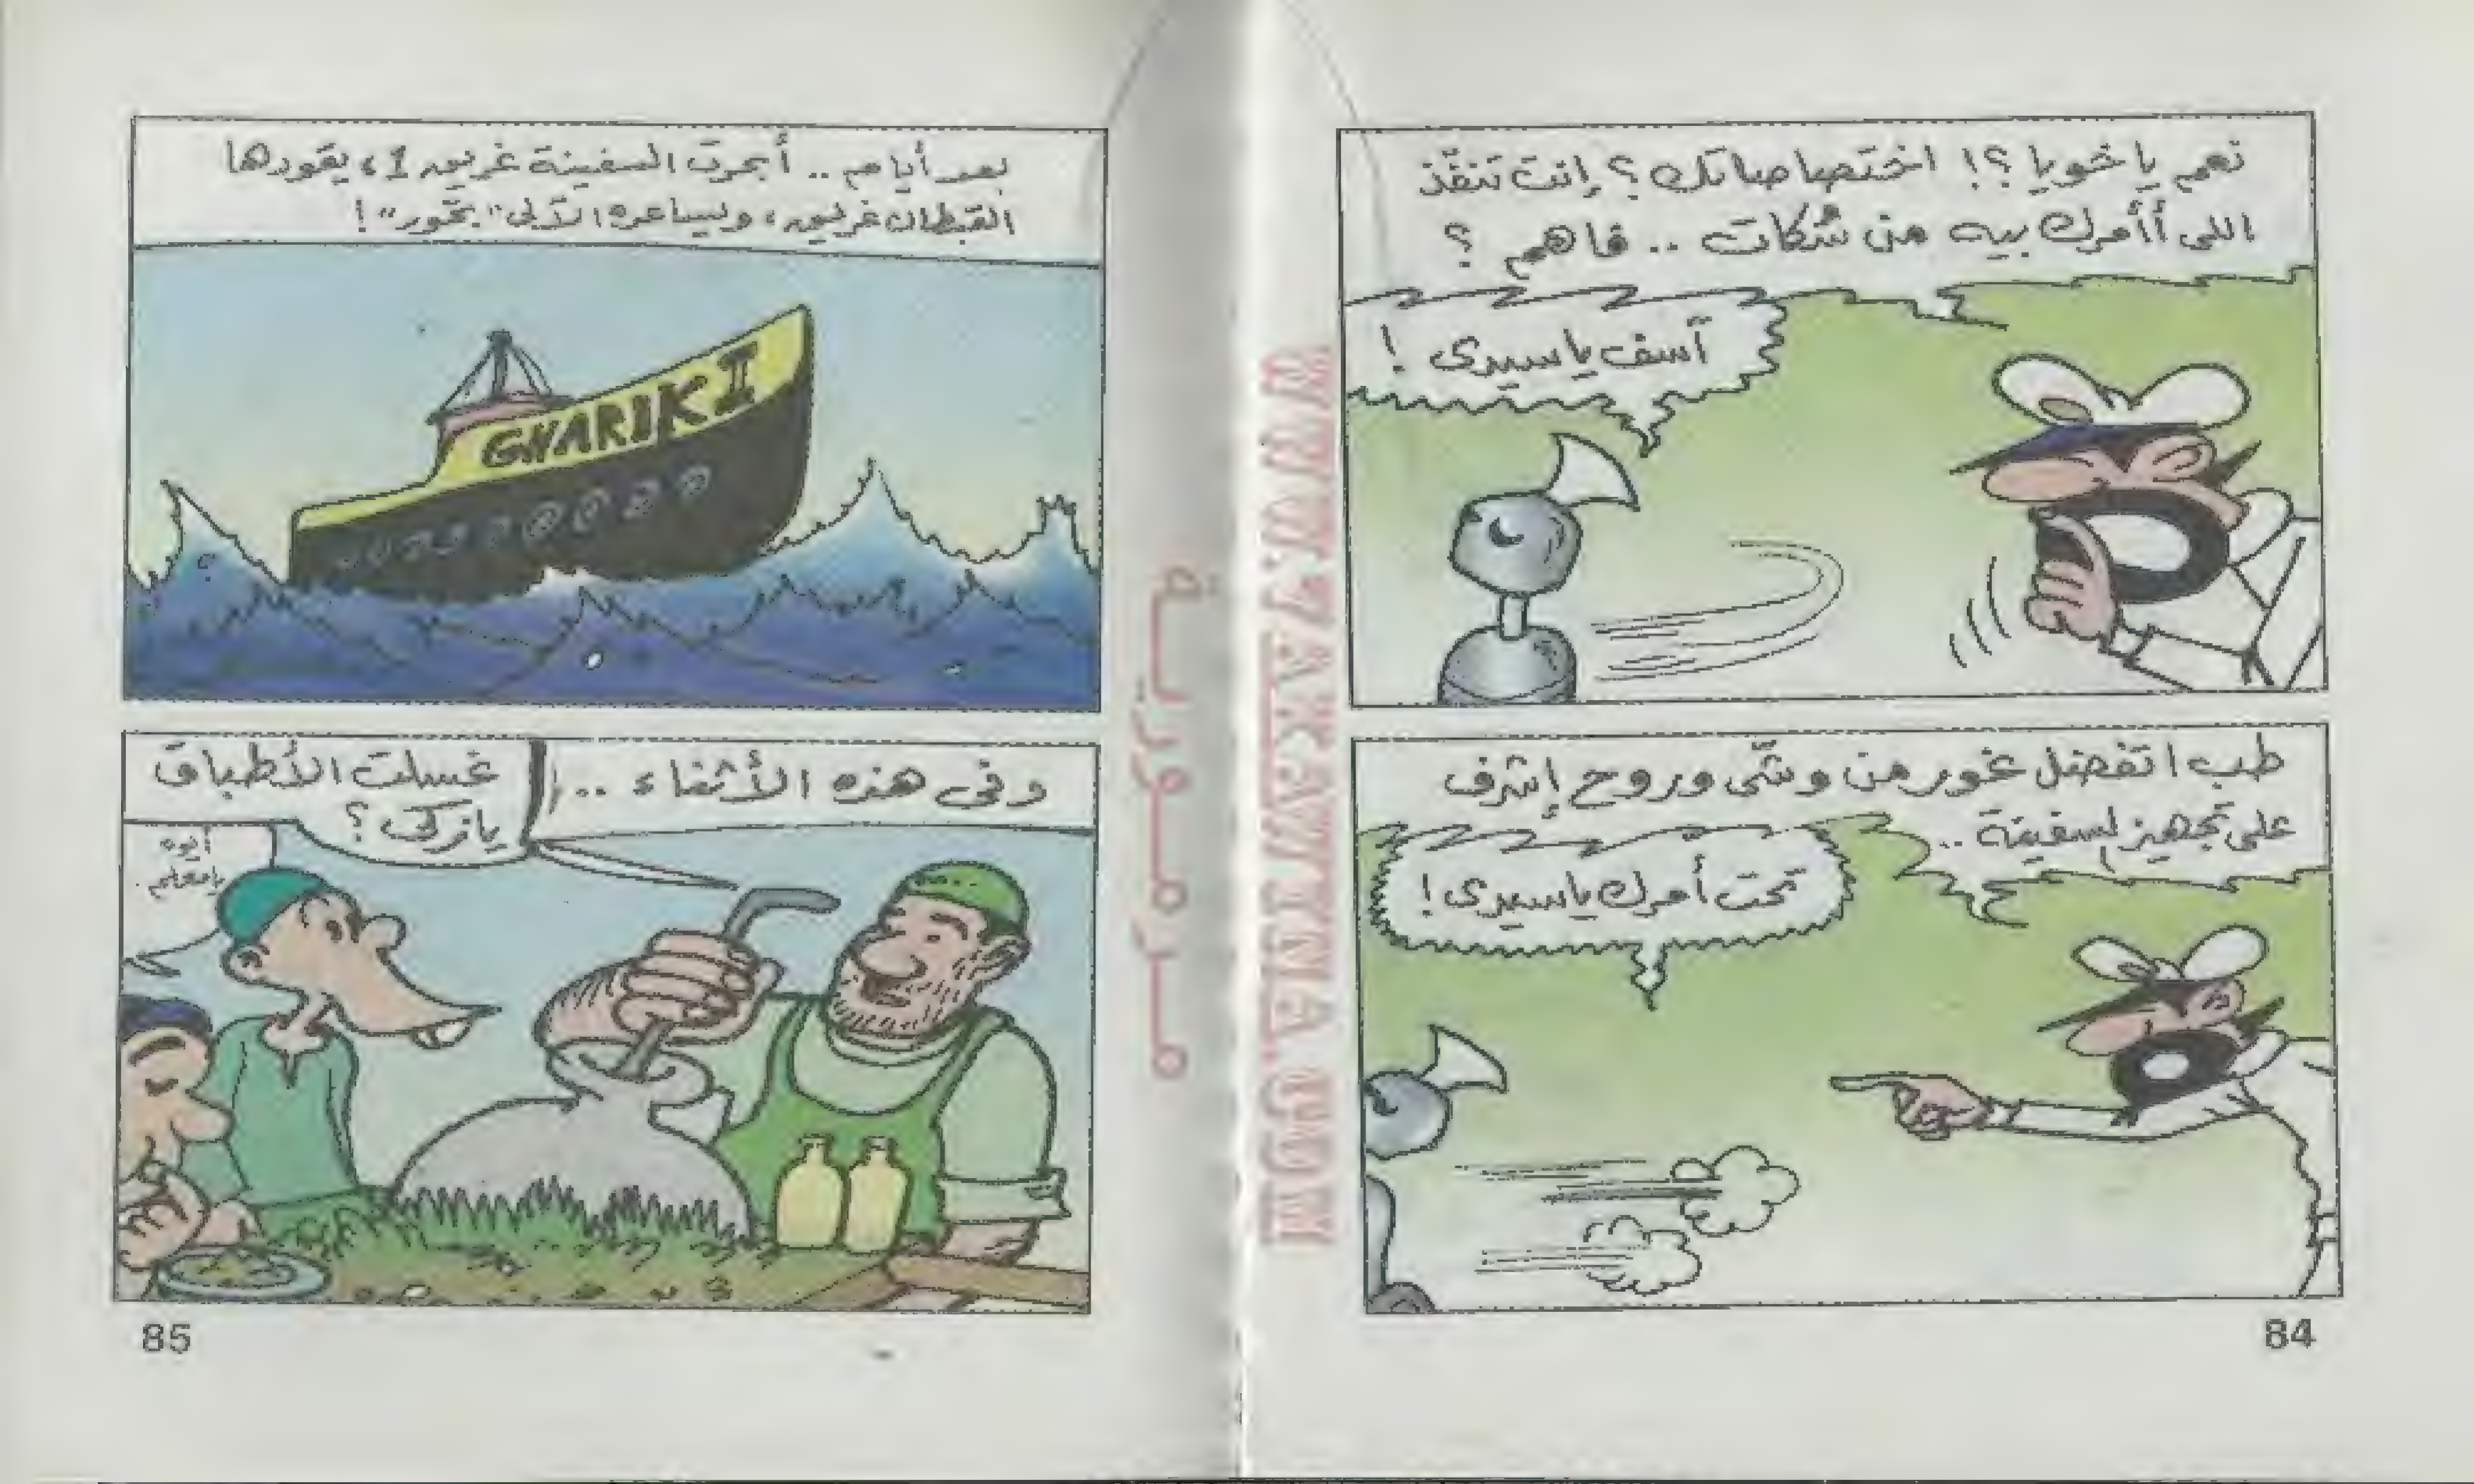 نعم يا خويا ؟! اختصاصاتك ؟ إنت تنفّذ
اللى أأمرك بيه من سُكات .. فاهم ؟
آسف يا سيدى !
طب اتفضل غور من وشّى وروح إشرف
على تجهيز لسفينة ..
تحت أمرك يا سيدى !
84
بعد أيام .. أبحرت السفينة غريق 1 ، يقودها
القبطان غريق ، ويساعده الآلى "بخّور" !
GHARIK I
وفى هذه الأثناء ..
غسلت الأطباق
يا زكى ؟
أيوه
يا معلم .
85
مرمورية
WWW.ZAKAWYNA.COM